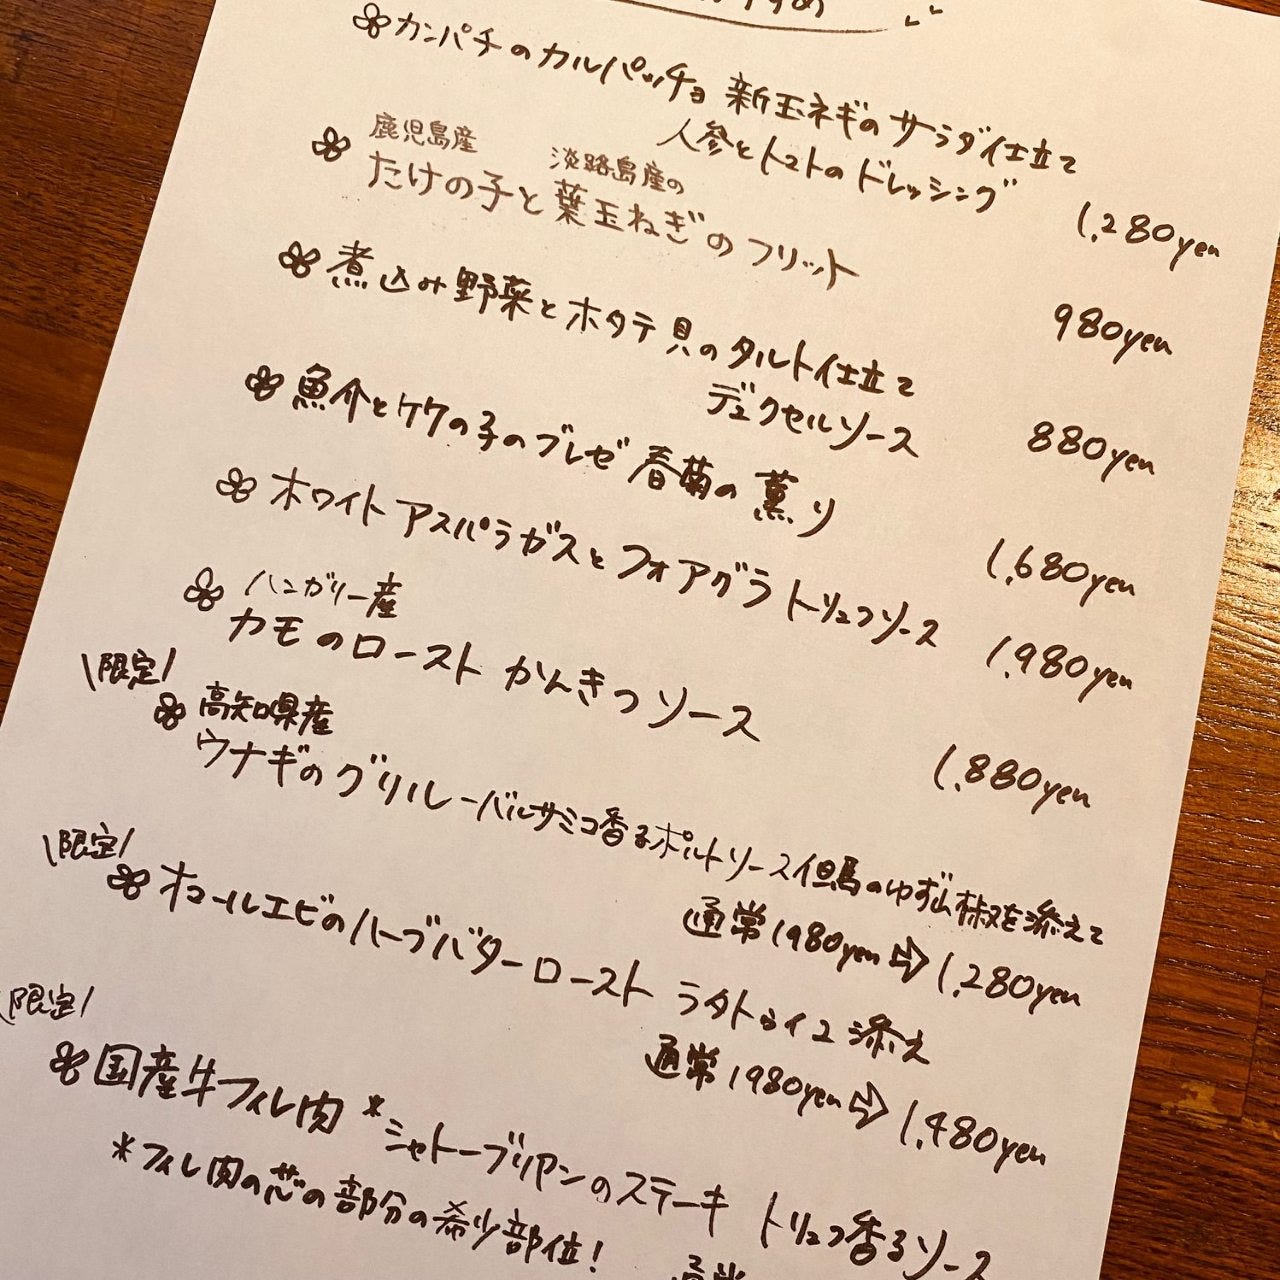 すすめ
カンパチのカルパッチョ 新玉ネギのサラダ仕立て
人参とトマトのドレッシング 1,280yen
鹿児島産 淡路島産の
たけの子と葉玉ねぎのフリット 980yen
煮込み野菜とホタテ貝のタルト仕立て
デュクセルソース 880yen
魚介とタケの子のブレゼ 春菊の薫り 1,680yen
ホワイトアスパラガスとフォアグラ トリュフソース 1,980yen
ハンガリー産
カモのロースト かんきつソース 1,880yen
\限定/
高知県産
ウナギのグリル-バルサミコ香るポルトソース但馬のゆず山椒を添えて
通常1980yen⇨1,280yen
\限定/
オマールエビのハーブバターロースト ラタトゥイユ添え
通常1980yen⇨1,480yen
\限定/
国産牛フィレ肉*シャトーブリアンのステーキ トリュフ香るソース
*フィレ肉の芯の部分の希少部位! 通常